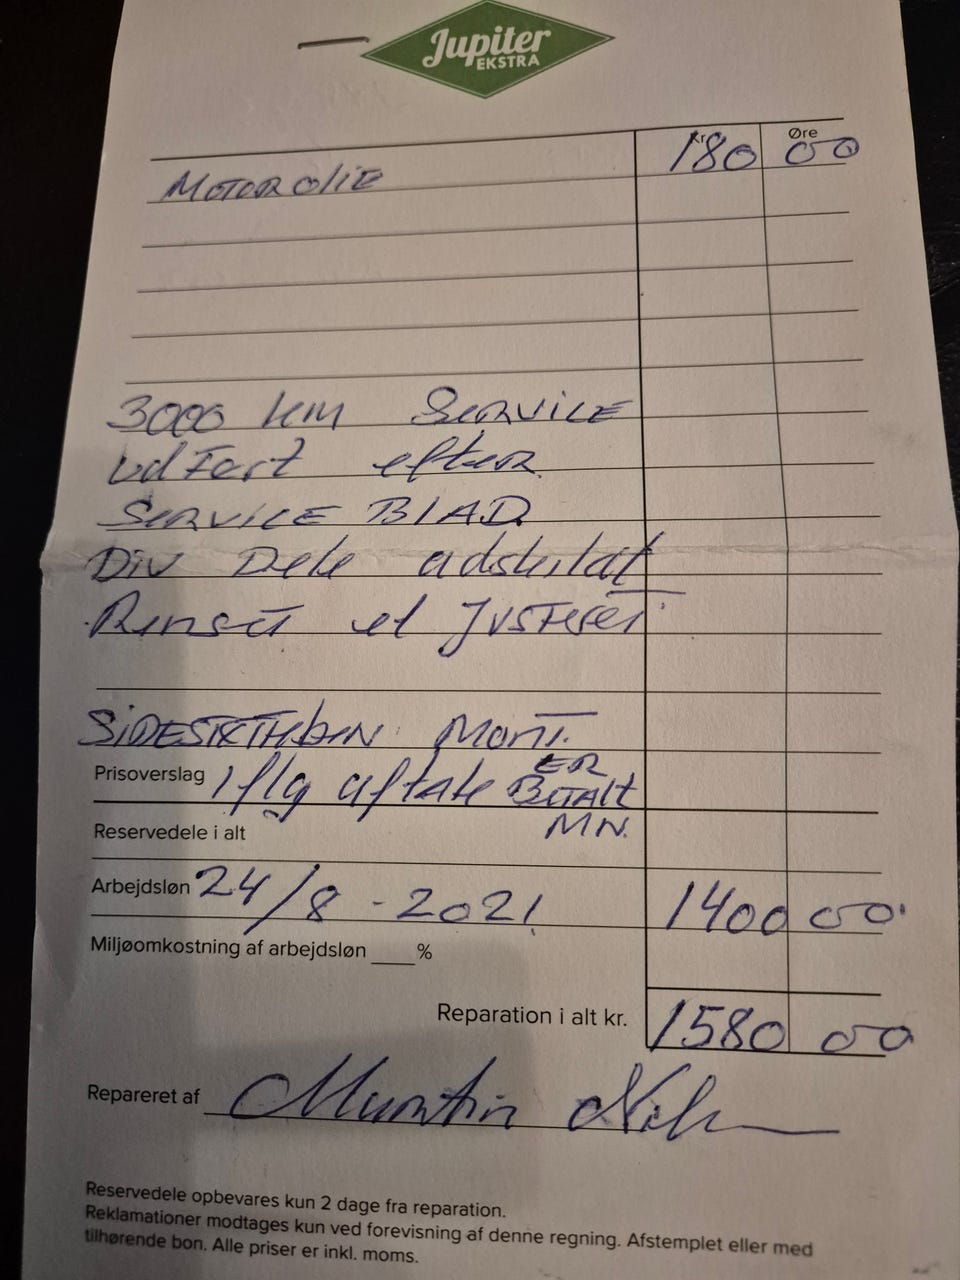 Jupiter
EKSTRA
Kr. Øre
MOTOROLIE 180 00
3000 KM SERVICE
UDFØRT EFTER
SERVICE BLAD
DIV Dele adskildt
Renset et JUSTERET
MONT.
Prisoverslag Iflg aftale ER BETALT
Reservedele i alt MN.
Arbejdsløn 24/8-2021 1400 00
Miljøomkostning af arbejdsløn ___ %
Reparation i alt kr. 1580 00
Repareret af
Reservedele opbevares kun 2 dage fra reparation.
Reklamationer modtages kun ved forevisning af denne regning. Afstemplet eller med
tilhørende bon. Alle priser er inkl. moms.